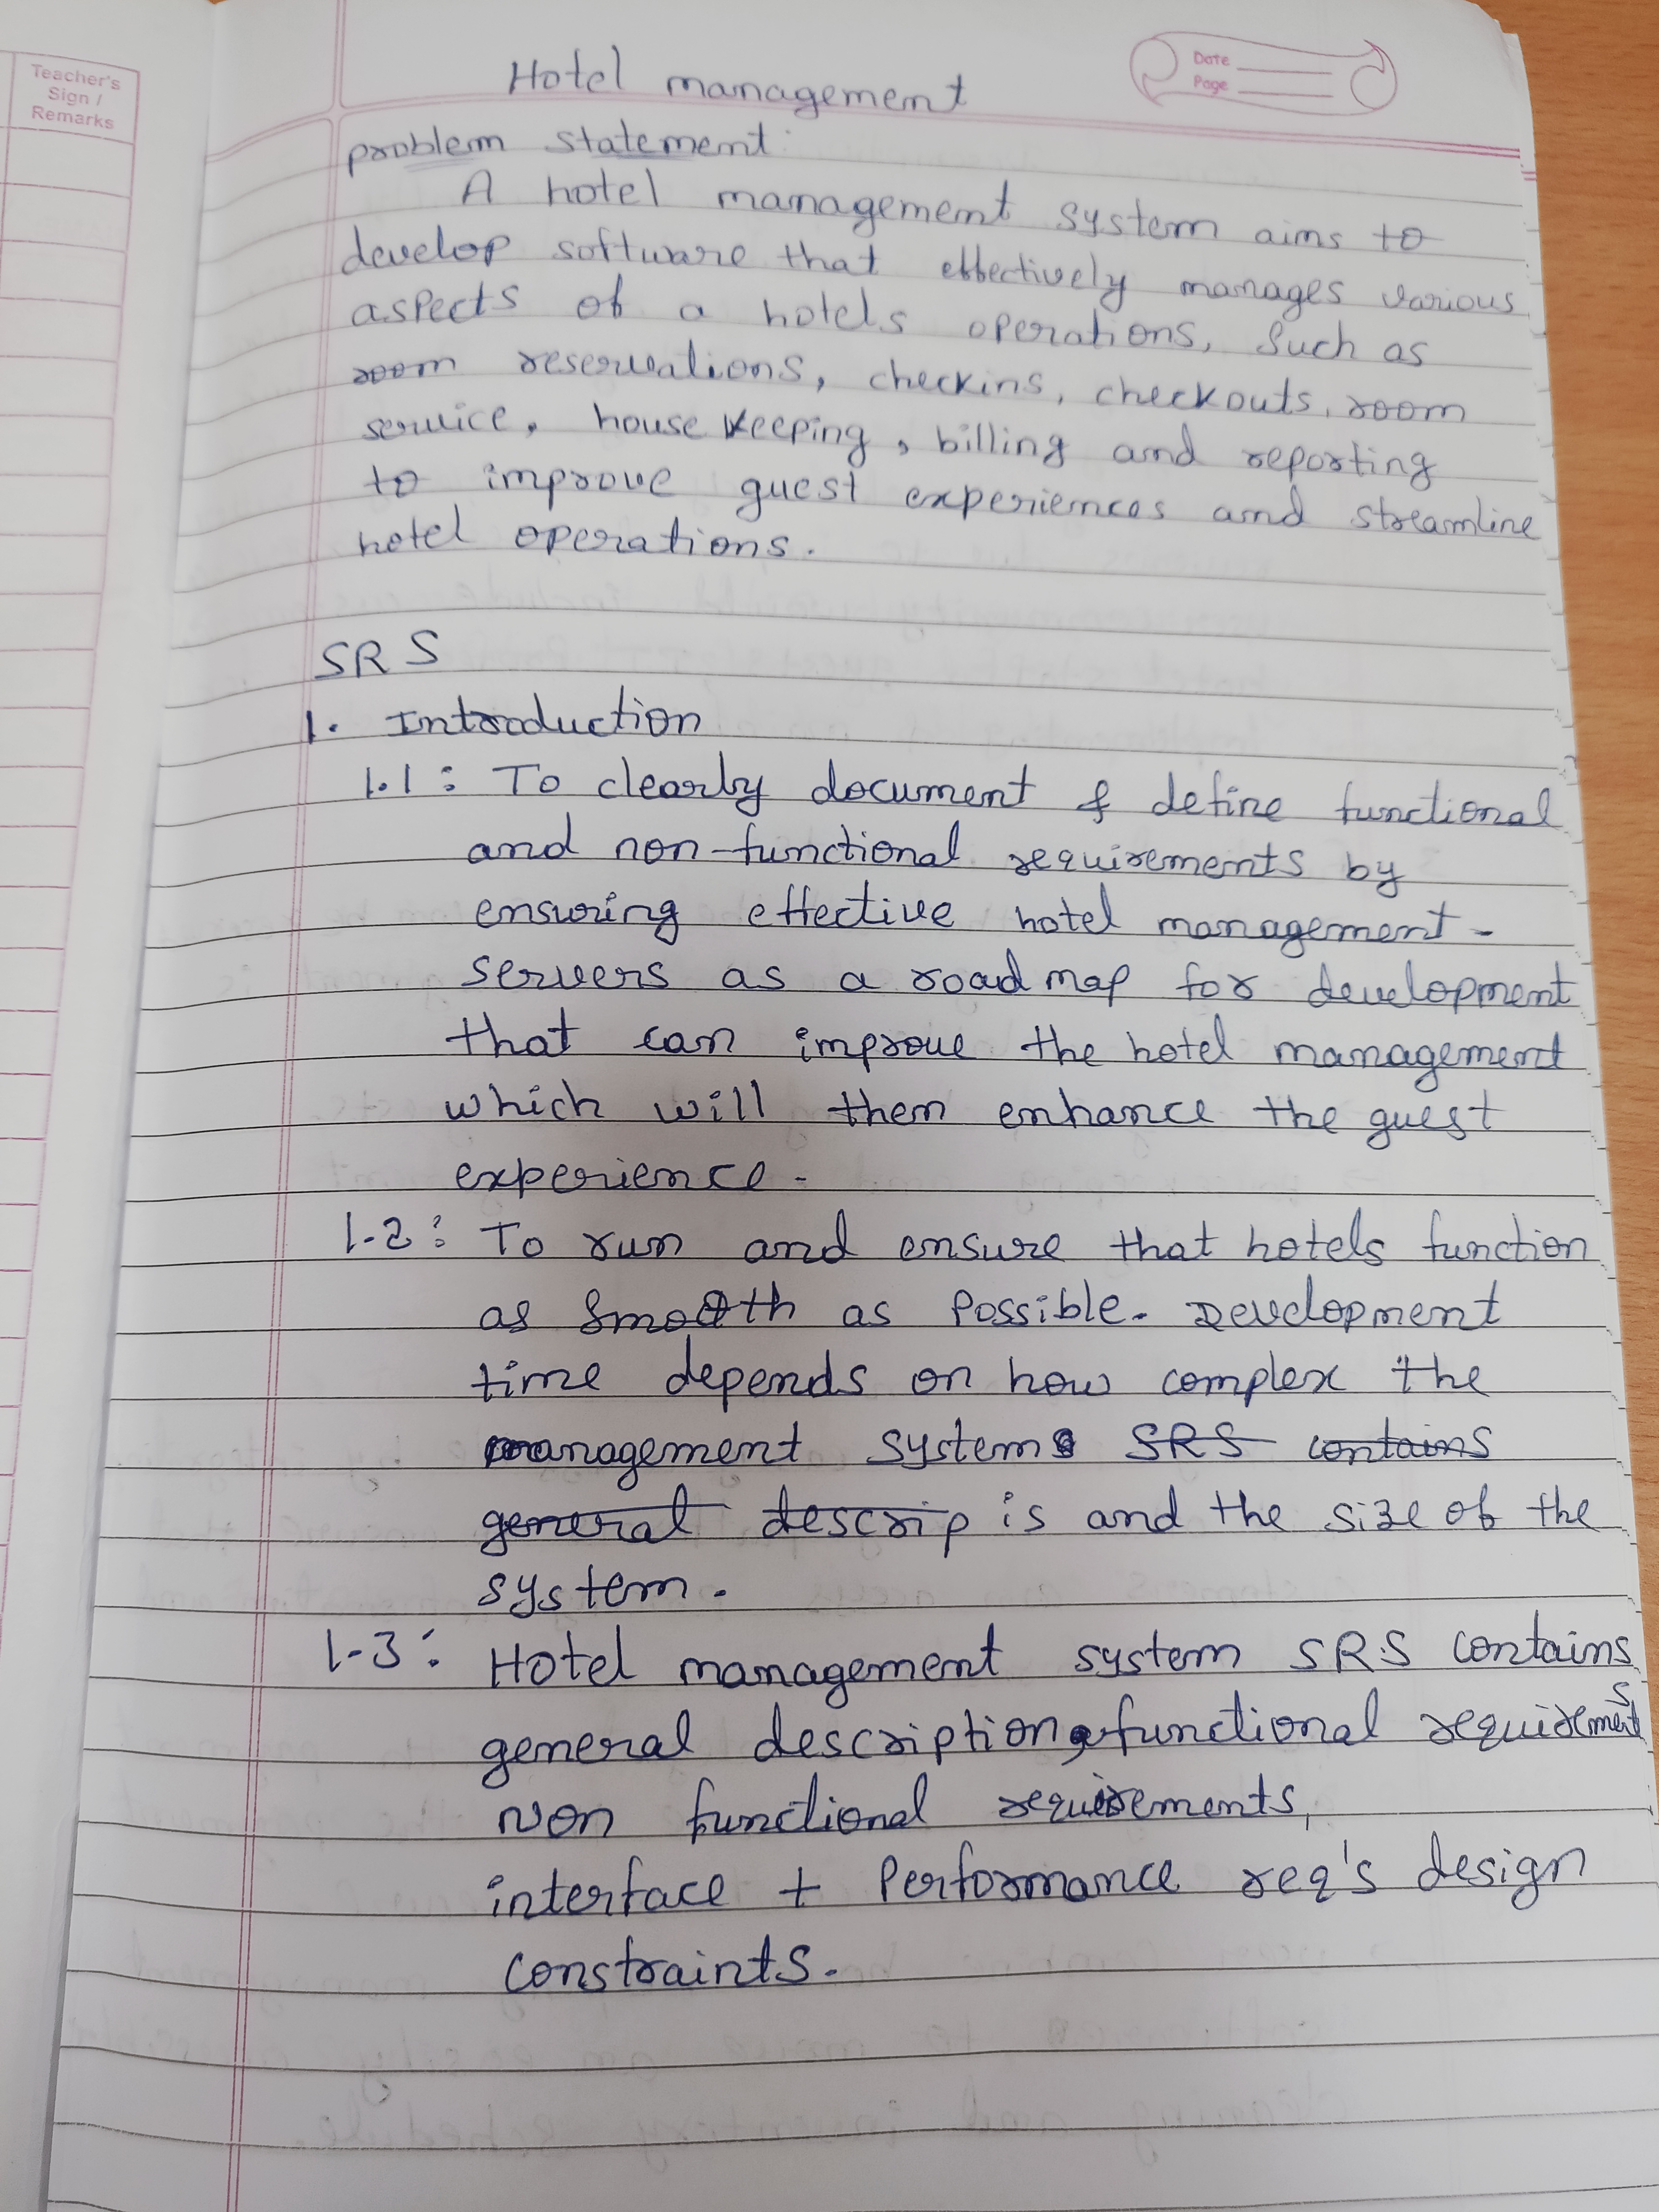 Teacher's
Sign /
Remarks
Date
Page
Hotel management
problem statement:
A hotel management system aims to
develop software that effectively manages various
aspects of a hotels operations, such as
room reservations, checkins, checkouts, room
service, house keeping, billing and reporting
to improve guest experiences and streamline
hotel operations.
SRS
1. Introduction
1.1: To clearly document & define functional
and non-functional requirements by
ensuring effective hotel management -
servers as a road map for development
that can improve the hotel management
which will them enhance the guest
experience.
1.2: To run and ensure that hotels function
as smooth as possible. Development
time depends on how complex the
management system SRS contains
general descrip is and the size of the
system.
1.3: Hotel management system SRS contains
general description, functional requirements
Non functional requirements,
interface + Performance req's design
constraints.